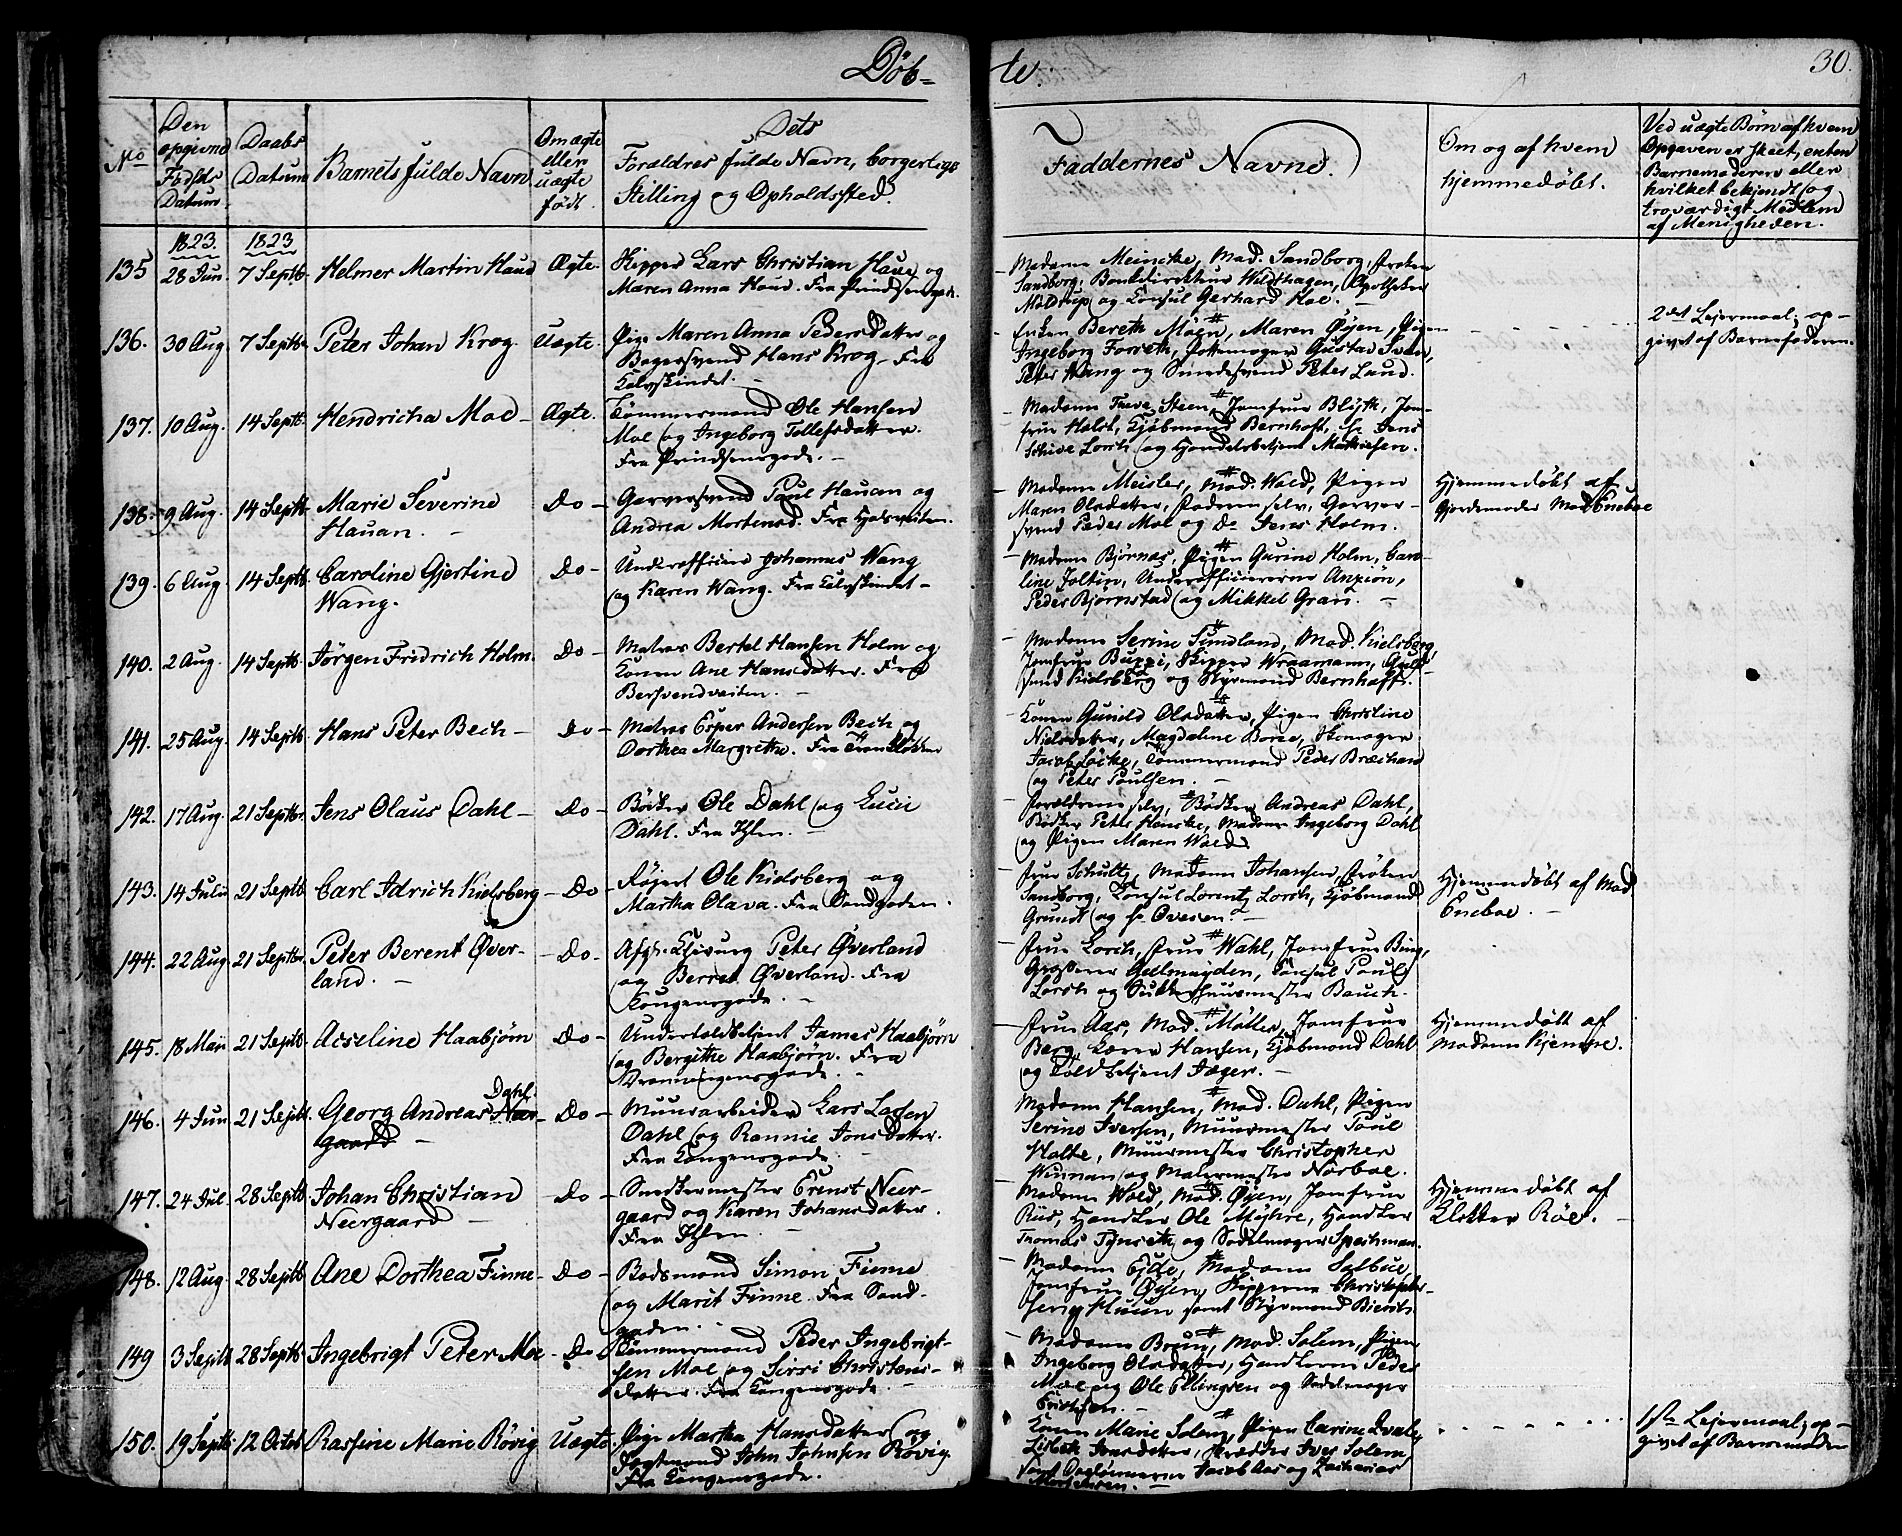 Døb-
te.
30.
No
Den opgivne Fødsels Datum.
Daabs Datum
Barnets fulde Navn
Om ægte eller uægte født.
Dets Forældres fulde Navn, borgerlige Stilling og Opholdssted.
Faddernes Navne.
Om og af hvem hjemmedøbt.
Ved uægte Børn af hvem Opgaven er skeet, enten Barnemoderen eller hvilket bekjendt og troværdigt Medlem af Menigheden.
1823. 1823
135 28 Jun. 7 Septb. Helmer Martin Ægte.
Skipper Lars Christian og
Maren Anna Fra Prindsensgade.
Madame Meincke, Mad. Sandborg, Frøken
Sandborg, Bankdirekteur Apotheker
og Consul Gerhard Hoe.
136. 30 Aug. 7 Septb. Peter Johan Krog. Uægte.
Pige Maren Anna Pedersdatter og
Bagersvend Hans Krog. Fra
Kalvskindet.
Enken Bereth Moen, Maren Øyen, Pigen
Ingeborg Forseth, Pottemager Gustav Sven,
Peter Wang og Smedesvend Peter Lund.
2det Leiermaal; op-
givet af Barnefaderen.
137. 10 Aug. 14 Septb. Hendricha Moe Ægte.
Tømmermand Ole Hansen
Moe og Ingeborg Tollefsdatter.
Fra Prindsensgade.
Madame Steen, Jomfrue Blyth, Jom-
frue Holst, Kjøbmand Bernhoft, Hr. Jens
Schive Lorch og Handelsbetjent Mathiesen.
138. 9 Aug. 14 Septb. Marie Severine
Hauan. Do
Garversvend Paul Hauan og
Andrea Mortensd. Fra
Madame Meisler, Mad. Wold, Pigen
Maren Olsdatter, Faderen selv, Garver-
svend Peder Moe og Do Jens Holm.
Hjemmedøbt af
Gjordemoder Mad Eneboe
139. 6 Aug. 14 Septb. Caroline Gjertine
Wang. Do
Underofficier Johannes Wang
og Karen Wang. Fra Kalvskindet
Madame Bjørnas, Pigen Gurine Holm, Caro-
line Underofficiererne
Peder Bjørnstad og Mikkel Gran.
140. 2 Aug. 14 Septb. Jørgen Fridrich Holm. Do
Matros Bertel Hansen Holm og
Konen Ane Hansdatter. Fra
Bersvendveiten.
Madame Serine Sundland, Mad. Kielsberg,
Jomfrue Skipper Wraamann, Guld-
smed Kielsberg og Styrmand Bernhoft.
141. 25 Aug. 14 Septb. Hans Peter Bech Do
Matros Esper Andersen Bech og
Dorthea Margrethe. Fra
Konen Gunild Olsdatter, Pigen Christine
Nielsdatter, Magdaline
Jacob Løcke, Tømmermand Peder
og Peter Poulsen.
142. 17 Aug. 21 Septbr. Jens Olaus Dahl Do
Bødker Ole Dahl og Lucie
Dahl. Fra Ihlen.
Forældrene selv, Bødker Andreas Dahl,
Bødker Peter Madame Ingeborg Dahl
og Pigen Maren Wold
143. 14 Juli 21 Septb. Carl Idrich Kielsberg Do
Ole Kielsberg og
Martha Olava. Fra Sandgaden.
Frue Schultz, Madame Johansen, Frøken
Sandborg, Consul Lorentz Lorch, Kjøbmand
Grundt og Hr. Ovesen.
Hjemmedøbt af Mad
Eneboe.
144. 22 Aug. 21 Septbr. Peter Berent Øver-
land. Do
Peter Øverland
og Berret Øverland. Fra
Kongensgade.
Frue Lorch, Frue Wahl, Jomfrue Bing,
Grosserer Consul Paul
Lorch og Bauch.
145. 18 Mai 21 Septb. Acseline Haabjørn Do
Undertoldbetjent James Haabjørn
og Bergithe Haabjørn. Fra
Dronningensgade.
Frue Aas, Mad. Møller, Jomfrue
Berg, Hansen, Kjøbmand Dahl
og Toldbetjent Jæger.
Hjemmedøbt af
Madame Kjempe.
146. 4 Jun. 21 Septb. Georg Andreas Dahl Neer-
gaard Do
Muurarbeider Lars Larsen
Dahl og Rannie Jonsdatter.
Fra Kongensgade.
Madame Hansen, Mad. Dahl, Pigen
Serine Iversen, Muurmester Poul
Holte, Muurmester Christopher
og Malermester Norboe.
147. 24 Jul. 28 Septb. Johan Christian
Neergaard Do
Snedkermester Ernst Neer-
gaard og Karen Johansdatter.
Fra Ihlen.
Madame Wold, Mad. Øyen, Jomfrue
Riis, Handler Ole Møhre, Handler
Thomas Tynseth og Sadelmager Spechman.
Hjemmedøbt af
Klokker Röe.
148. 12 Aug. 28 Septb. Ane Dorthea Finne Do
Badsmand Simon Finne
og Marit Finne. Fra Sand-
gaden.
Madame Madame Selboe,
Jomfrue Øyen, Skipperne Christopher-
sen og Huun samt Styrmand
149 3 Septb 28 Septb. Ingebrigt Peter Moe Do
Tømmermand Peder Ingebrigt-
sen Moe og Sirri Christens-
datter. Fra Kongensgade.
Madame Bruun, Mad. Solem, Pigen
Ingeborg Olsdatter, Handlerne Peder
Moe og Ole Ellingsen og Sadelmager
150. 19 Septb. 12 Octob Rasfine Marie Røvig Uægte.
Pige Martha Hansdatter og
Fogtmand John Johnsen Røvig
Fra Kongensgade.
Konen Marie Solem, Pigen Carine
Lisbeth Jonsdatter, Skrædder Iver Solem,
samt Jacob Aas og Zacharias
1ste Leiermaal; op-
givet af Barnemoderen